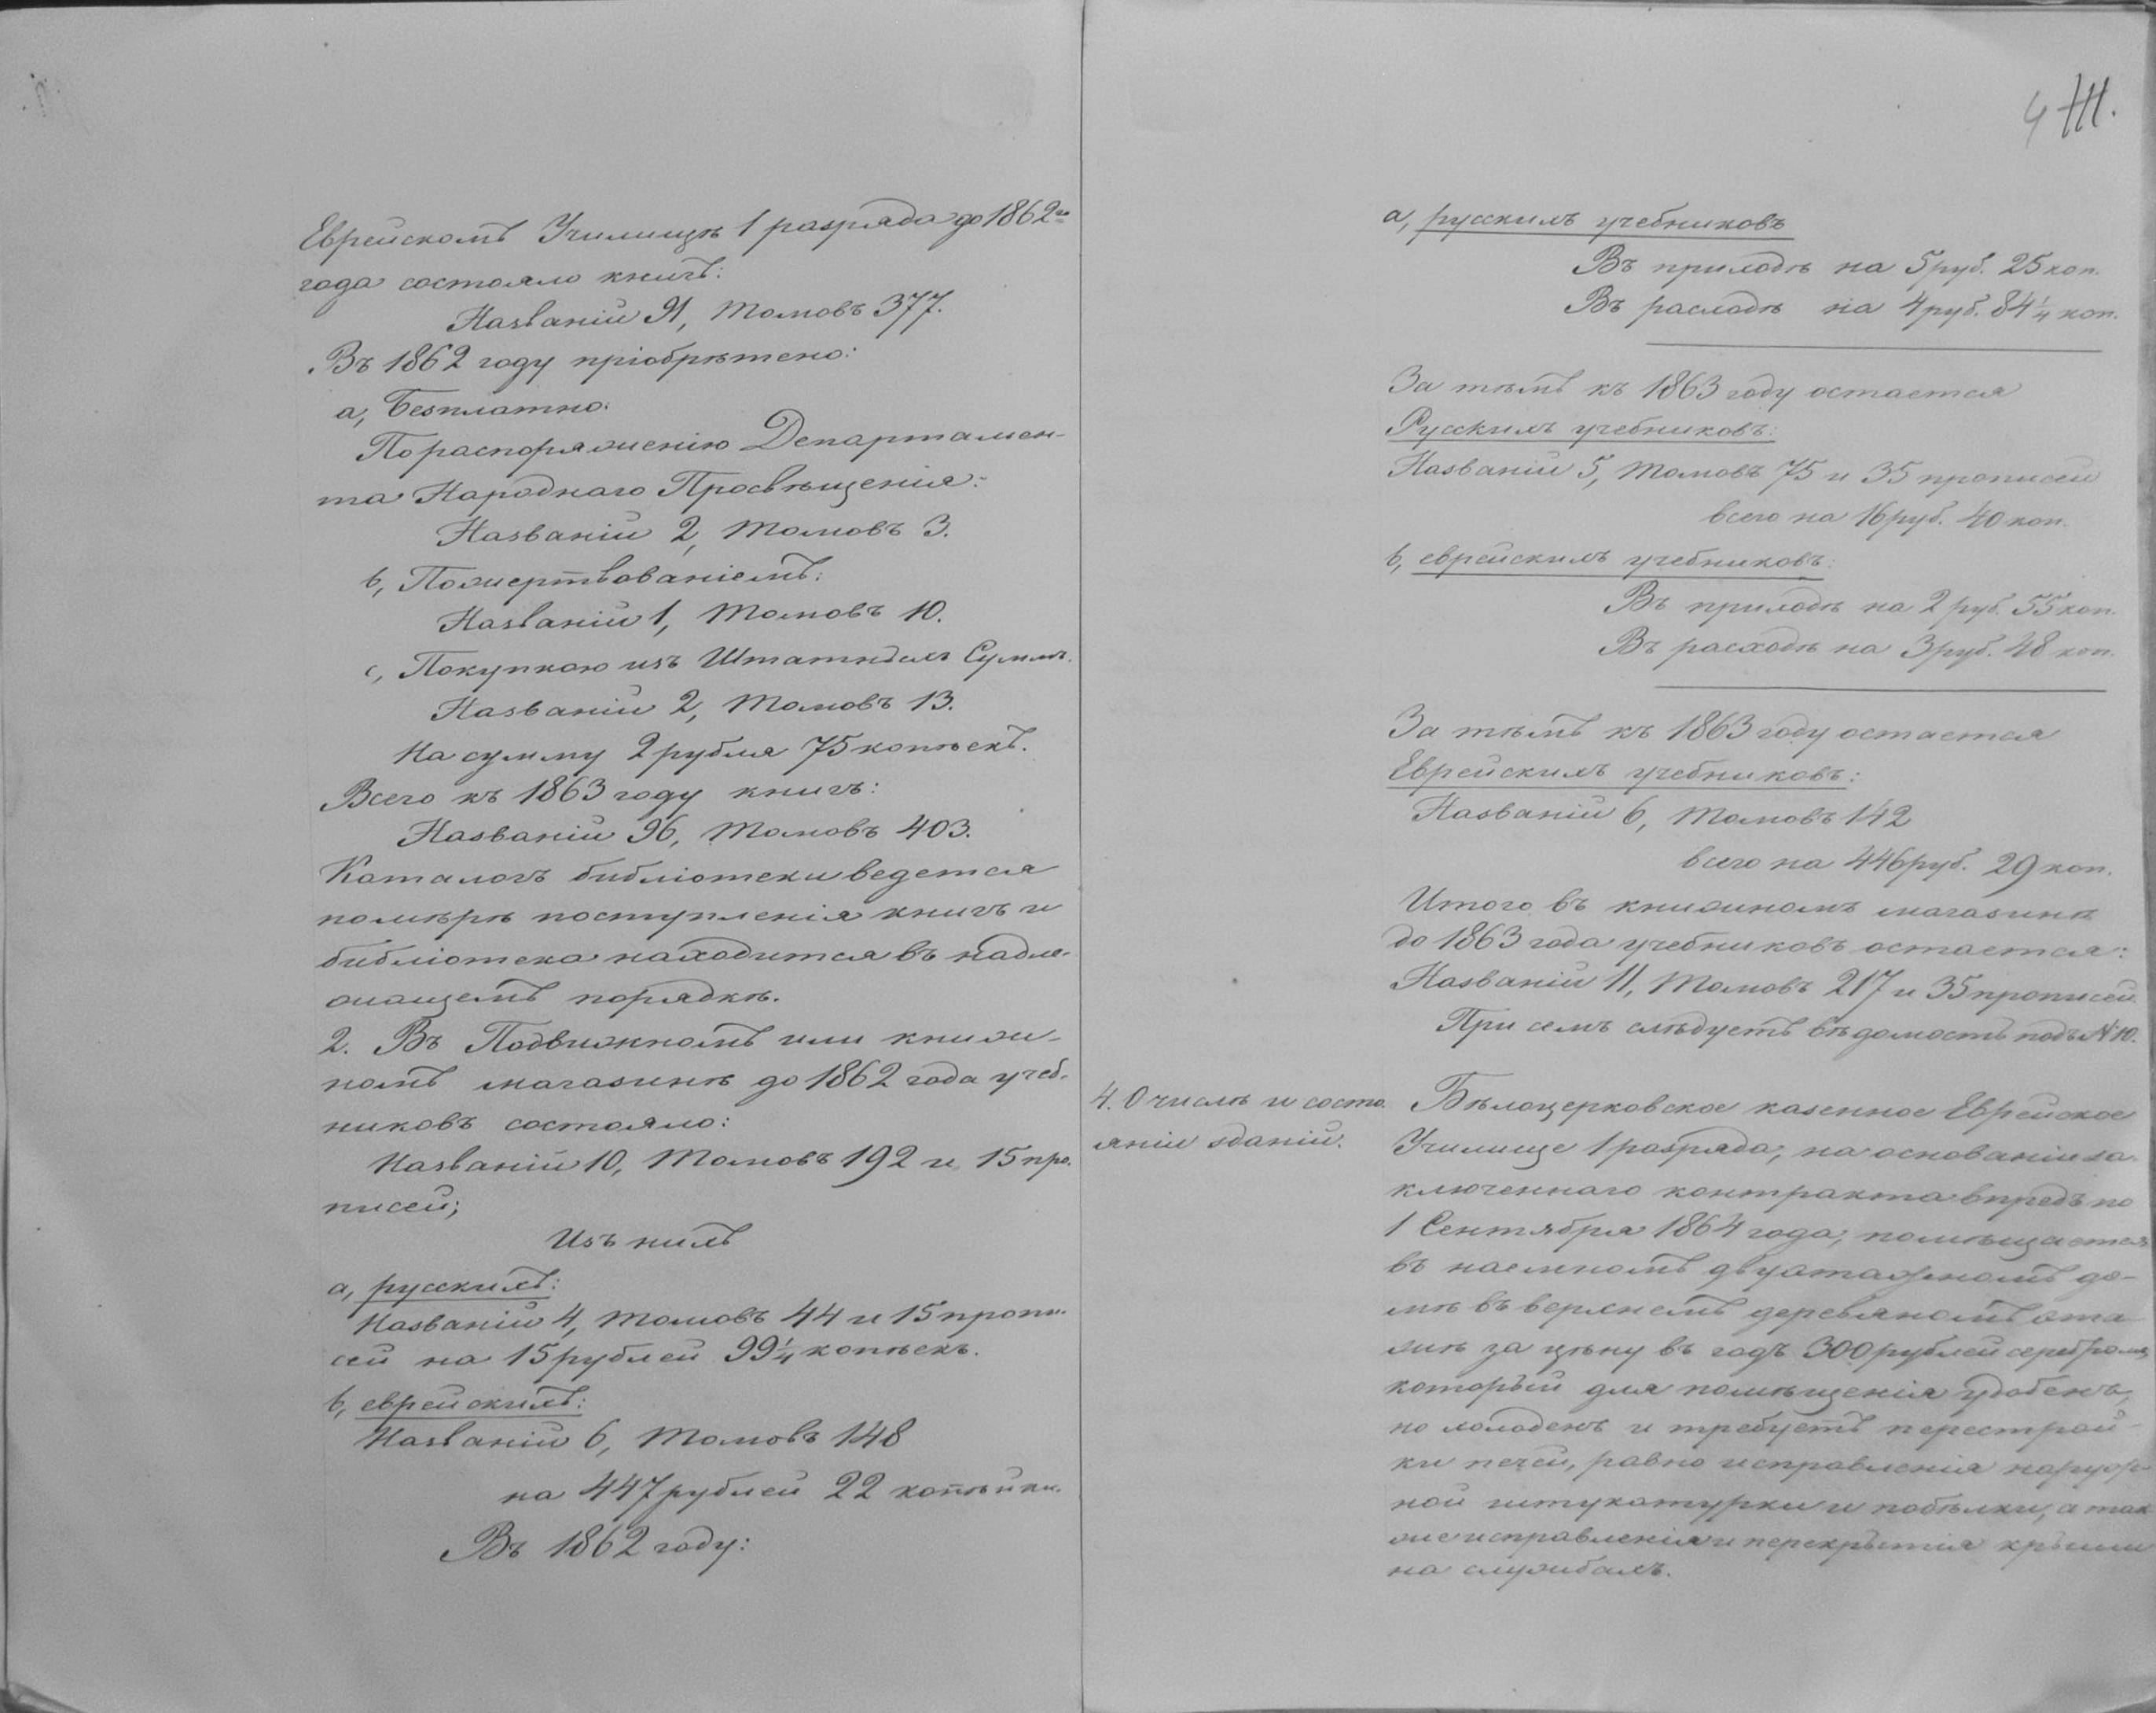 Еврейскомъ Училищѣ 1 разряда до 1862го
года состояло книгъ:
Названій 91, Томовъ 377.
Въ 1862 году пріобрѣтено:
а, Безплатно:
По распоряженію Департамен-
та Народнаго Просвѣщенія:
Названій 2, Томовъ 3.
b, Пожертвованіемъ:
Названій 1, Томовъ 10.
с, Покупкою изъ Штатныхъ Суммъ.
Названій 2, Томовъ 13.
На сумму 2 рубля 75 копѣекъ.
Всего къ 1863 году книгъ:
Названій 96, Томовъ 403.
Каталогъ библіотеки ведется
по мѣрѣ поступленія книгъ и
библіотека находится въ надле-
жащемъ порядкѣ.
2. Въ Подвижномъ или книж-
номъ магазинѣ до 1862 года учеб-
никовъ состояло:
Названій 10, Томовъ 192 и 15 про-
писей;
Изъ нихъ
а, русскихъ:
Названій 4, Томовъ 44 и 15 пропи-
сей на 15 рублей 99 1/4 копѣекъ.
b, еврейскихъ:
Названій 6, Томовъ 148
на 447 рублей 22 копѣйки.
Въ 1862 году:
4 III.
а, русскихъ учебниковъ
Въ приходѣ на 5 руб. 25 коп.
Въ расходѣ на 4 руб. 84 1/4 коп.
За тѣмъ къ 1863 году остается
Русскихъ учебниковъ:
Названій 5, Томовъ 75 и 35 прописей
всего на 16 руб. 40 коп.
b, еврейскихъ учебниковъ:
Въ приходѣ на 2 руб. 55 коп.
Въ расходѣ на 3 руб. 48 коп.
За тѣмъ къ 1863 году остается
Еврейскихъ учебниковъ:
Названій 6, Томовъ 142
всего на 446 руб. 29 коп.
Итого въ книжномъ магазинѣ
до 1863 года учебниковъ остается:
Названій 11, Томовъ 217 и 35 прописей.
При семъ слѣдуетъ вѣдомость подъ № 10.
4. О числѣ и состо-
яніи зданій.
Бѣлоцерковское казенное Еврейское
Училище 1 разряда, на основаніи за-
ключеннаго контракта впредь по
1 Сентября 1864 года, помѣщается
въ наемномъ двуэтажномъ до-
мѣ въ верхнемъ деревяномъ эта-
жѣ за цѣну въ годъ 300 рублей серебромъ,
который для помѣщенія удобенъ,
но холоденъ и требуетъ перестрой-
ки печей, равно исправленія наруж-
ной штукатурки и побѣлки, а так
же исправленія и перекрытія крыши
на службахъ.